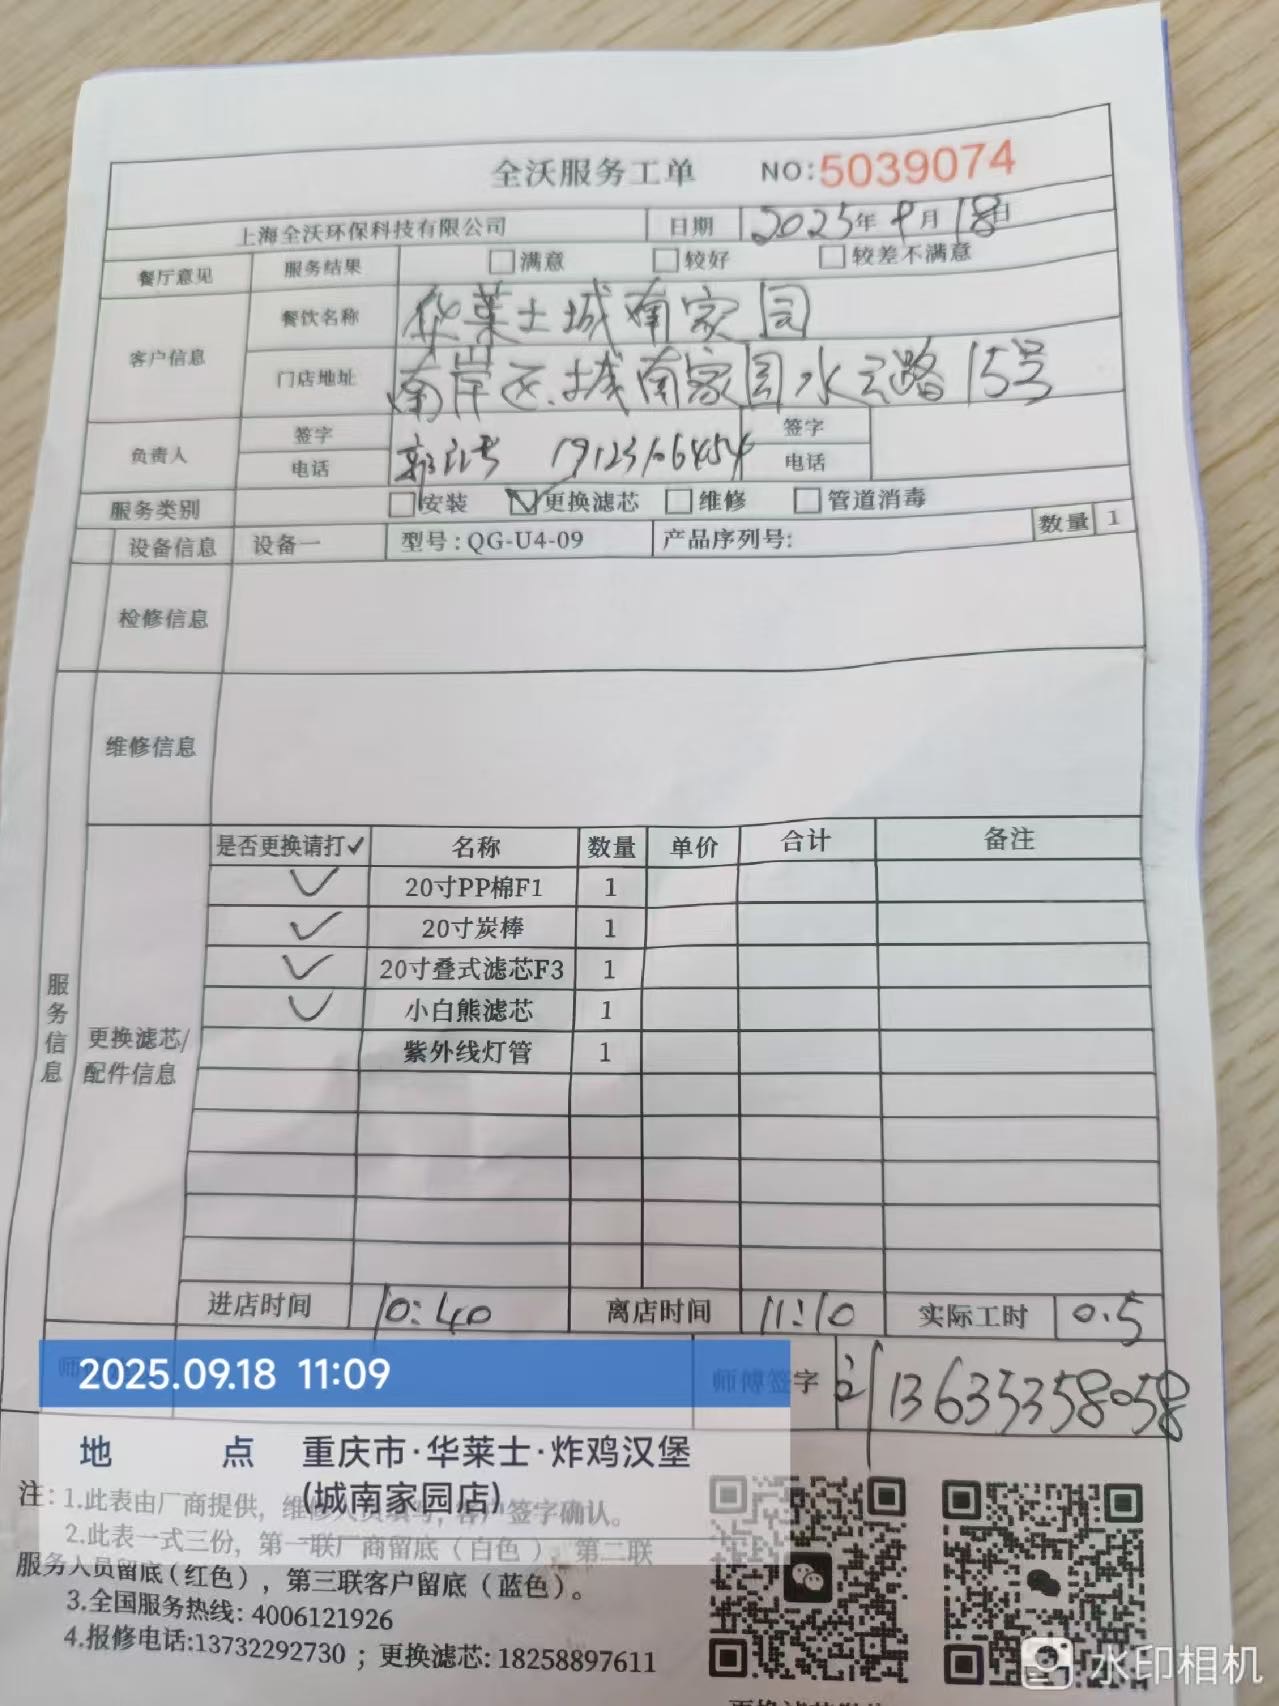 全沃服务工单 NO:5039074
上海全沃环保科技有限公司 日期 2025年9月18日
餐厅意见 服务结果 满意 较好 较差不满意
客户信息 餐饮名称 华莱士城南家园
门店地址 南岸区.城南家园水云路15号
负责人 签字 签字
电话 19123166454 电话
服务类别 安装 更换滤芯 维修 管道消毒
设备信息 设备一 型号:QG-U4-09 产品序列号: 数量 1
检修信息
维修信息
服务信息
更换滤芯/
配件信息
是否更换请打✓ 名称 数量 单价 合计 备注
✓ 20寸PP棉F1 1
✓ 20寸炭棒 1
✓ 20寸叠式滤芯F3 1
✓ 小白熊滤芯 1
紫外线灯管 1
进店时间 10:40 离店时间 11:10 实际工时 0.5
师傅签字 13635358058
2025.09.18 11:09
地 点 重庆市·华莱士·炸鸡汉堡
(城南家园店)
注: 1.此表由厂商提供, 维修人员填写, 客户签字确认。
2.此表一式三份, 第一联厂商留底(白色), 第二联
服务人员留底(红色), 第三联客户留底(蓝色)。
3.全国服务热线: 4006121926
4.报修电话:13732292730 ; 更换滤芯: 18258897611
水印相机